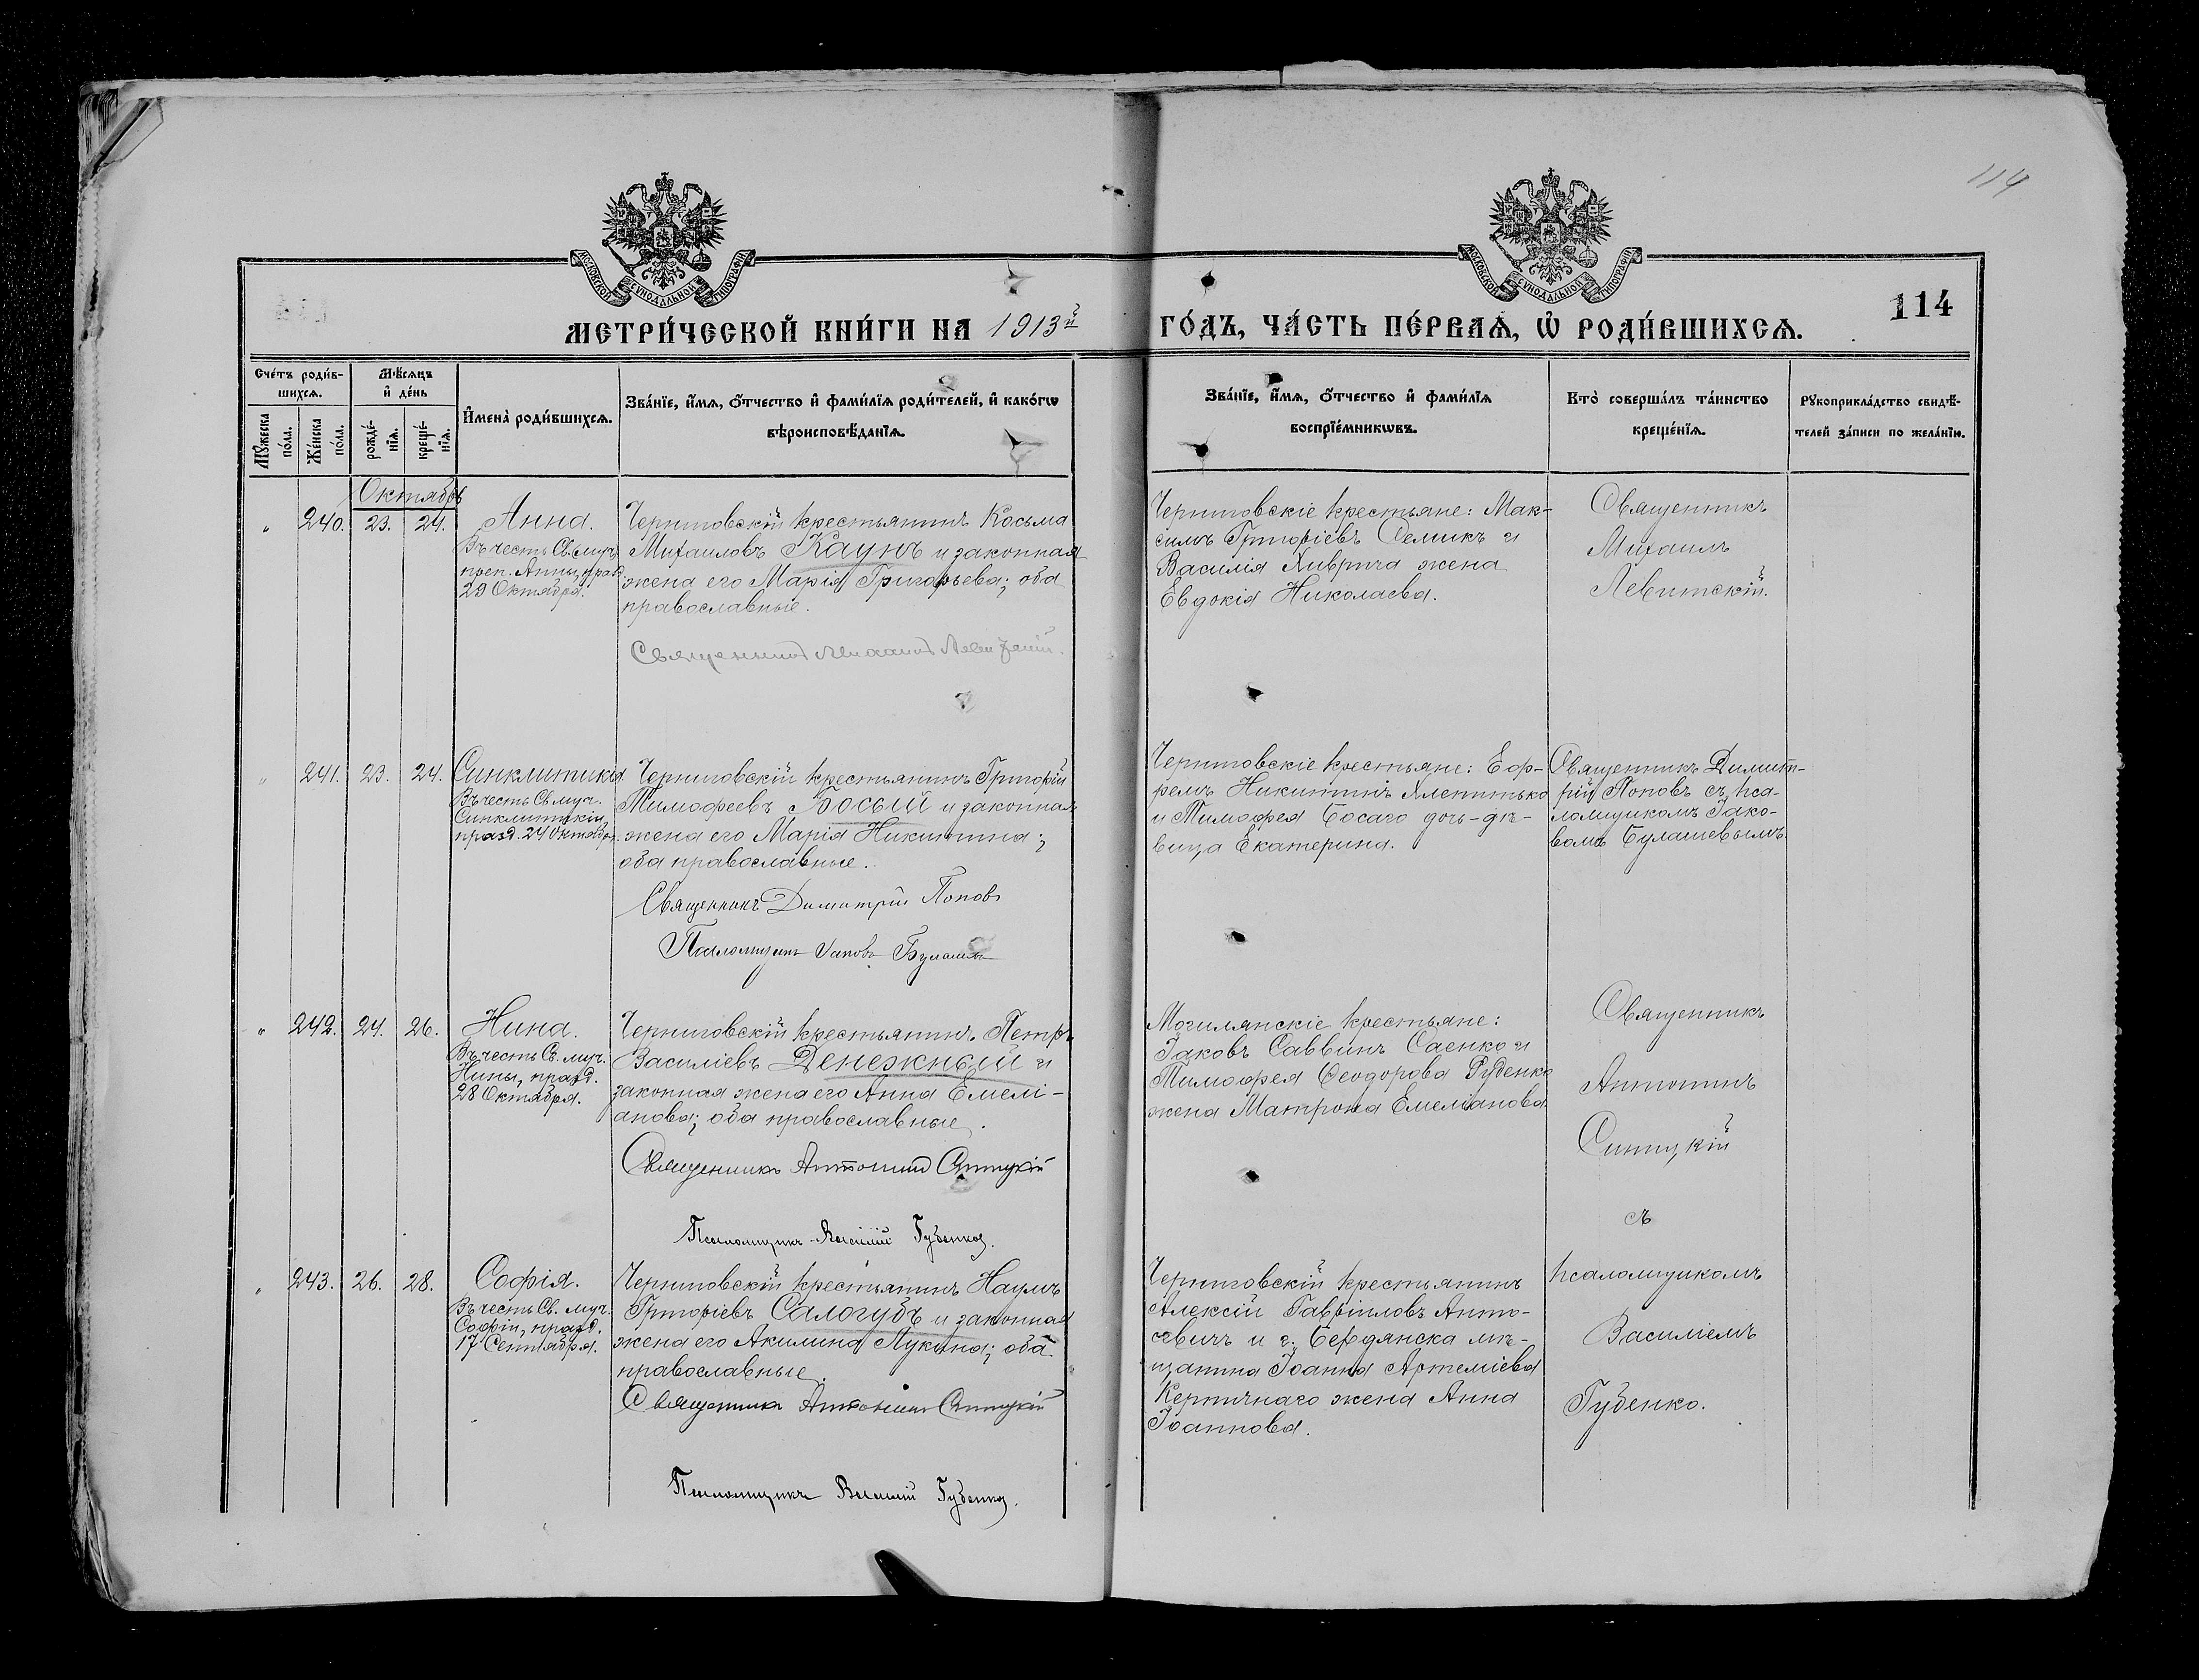 114
МОСКОВСКОЙ СѴНОДАЛЬНОЙ ТИПОГРАФІИ
МОСКОВСКОЙ СѴНОДАЛЬНОЙ ТИПОГРАФІИ
114
МЕТРИ́ЧЕСКОЙ КНИ́ГИ НА 1913й ГО́ДЪ, ЧА́СТЬ ПЕ́РВАѦ, Ѡ҆ РОДИ́ВШИХСѦ.
Сче́тъ роди́в-
шихсѧ.
Мꙋ́жеска по́ла.
Же́нска по́ла.
Мѣ́сѧцъ
и҆ де́нь
рожде́-
нїѧ.
креще́-
нїѧ.
И҆мена̀ роди́вшихсѧ.
Зва́нїе, и҆́мѧ, ѻ҆́тчество и҆ фами́лїѧ роди́телей, и҆ како́гѡ
вѣроисповѣ́данїѧ.
Зва́нїе, и҆́мѧ, ѻ҆́тчество и҆ фами́лїѧ
воспрїе́мникѡвъ.
Кто̀ соверша́лъ та́инство
креще́нїѧ.
Рꙋкоприкла́дство свидѣ́-
телей за́писи по жела́нїю.
Октябрь
" 240. 23. 24.
Анна.
Въ честь Св. муч.
преп. Анны, празд.
29 Октября.
Черниговскій крестьянинъ Косьма
Михаиловъ Каунъ и законная
жена его Марія Григорьева; оба
православные.
Священникъ Михаилъ Левитскій.
Черниговскіе крестьяне: Мак-
симъ Григоріевъ Семикъ и
Василія Хиврича жена
Евдокія Николаева.
Священникъ
Михаилъ
Левитскій.
" 241. 23. 24.
Синклитикія.
Въ честь Св. муч.
Синклитикіи,
празд. 24 Октября.
Черниговскій крестьянинъ Григорій
Тимофеевъ Босый и законная
жена его Марія Никитина;
оба православные.
Священникъ Димитрій Поповъ
Псаломщикъ Іаковъ Булашевъ
Черниговскіе крестьяне: Еф-
ремъ Никитинъ Хлепитько
и Тимофея Босаго дочь-дѣ-
вица Екатерина.
Священникъ Димит-
рій Поповъ съ пса-
ломщикомъ Іако-
вомъ Булашевымъ.
" 242. 24. 26.
Нина.
Въ честь Св. муч.
Нины, празд.
28 Октября.
Черниговскій крестьянинъ Петръ
Василіевъ Денежный и
законная жена его Анна Емелі-
анова; оба православные.
Священникъ Антонинъ Синицкій
Псаломщикъ Василій Губенко.
Могилянскіе крестьяне:
Іаковъ Саввинъ Саенко и
Тимофея Ѳеодорова Руденко
жена Матрона Емеліанова.
Священникъ
Антонинъ
Синицкій
съ
псаломщикомъ
Василіемъ
Губенко.
" 243. 26. 28.
Софія.
Въ честь Св. муч.
Софіи, празд.
17 Сентября.
Черниговскій крестьянинъ Наумъ
Григоріевъ Салогубъ и законная
жена его Акилина Лукина; оба
православные.
Священникъ Антонинъ Синицкій
Псаломщикъ Василій Губенко.
Черниговскій крестьянинъ
Алексій Гавріиловъ Анто-
севичъ и г. Бердянска мѣ-
щанина Іоанна Артеміева
Керничнаго жена Анна
Іоаннова.